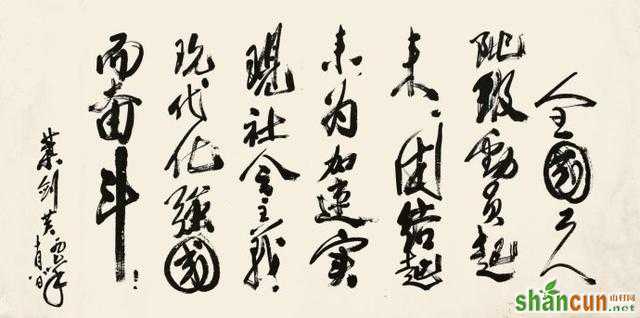 全國工人
阶级動员起
来、团结起
来、为加速实
现社会主义
现代化强國
而奋斗！
葉剑英
shancun
山村网
.net